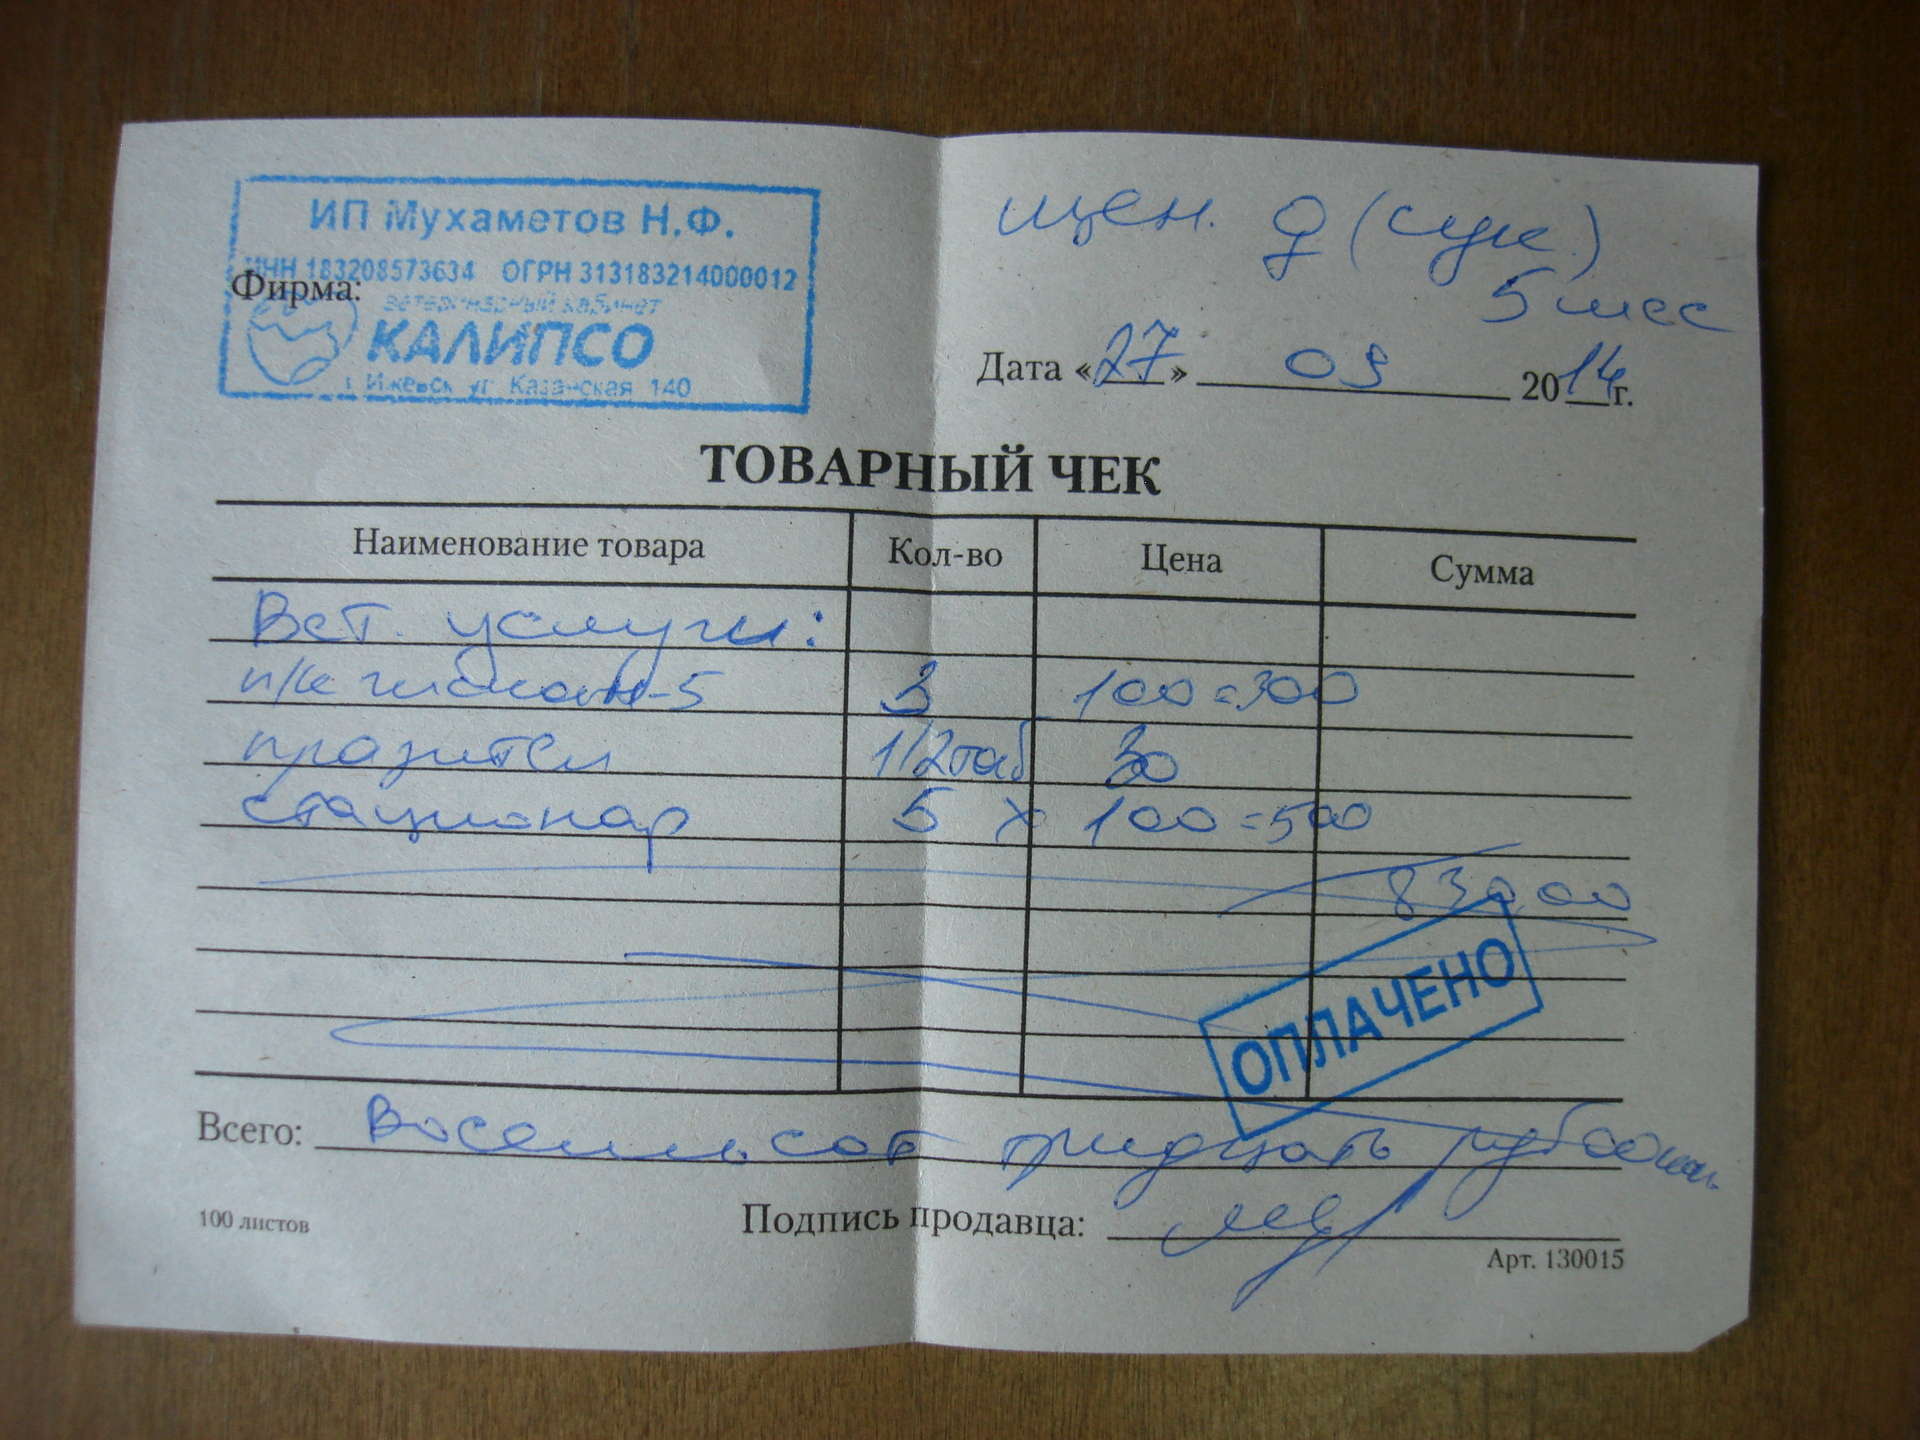 ИП Мухаметов Н.Ф.
ИНН 183208573634 ОГРН 313183214000012
Фирма:
ветеринарный кабинет
КАЛИПСО
г. Ижевск ул. Казанская 140
щен. (сук.)
5 мес
Дата «27» 09 2014г.
ТОВАРНЫЙ ЧЕК
Наименование товара Кол-во Цена Сумма
Вет. услуги:
п/к гискан-5 3 100=300
празител 1/2таб 30
стационар 5 х 100=500
830,00
ОПЛАЧЕНО
Всего: Восемьсот тридцать руб 00 коп.
100 листов Подпись продавца:
Арт. 130015